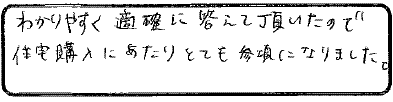 わかりやすく適確に答えて頂いたので
住宅購入にあたりとても参項になりました。